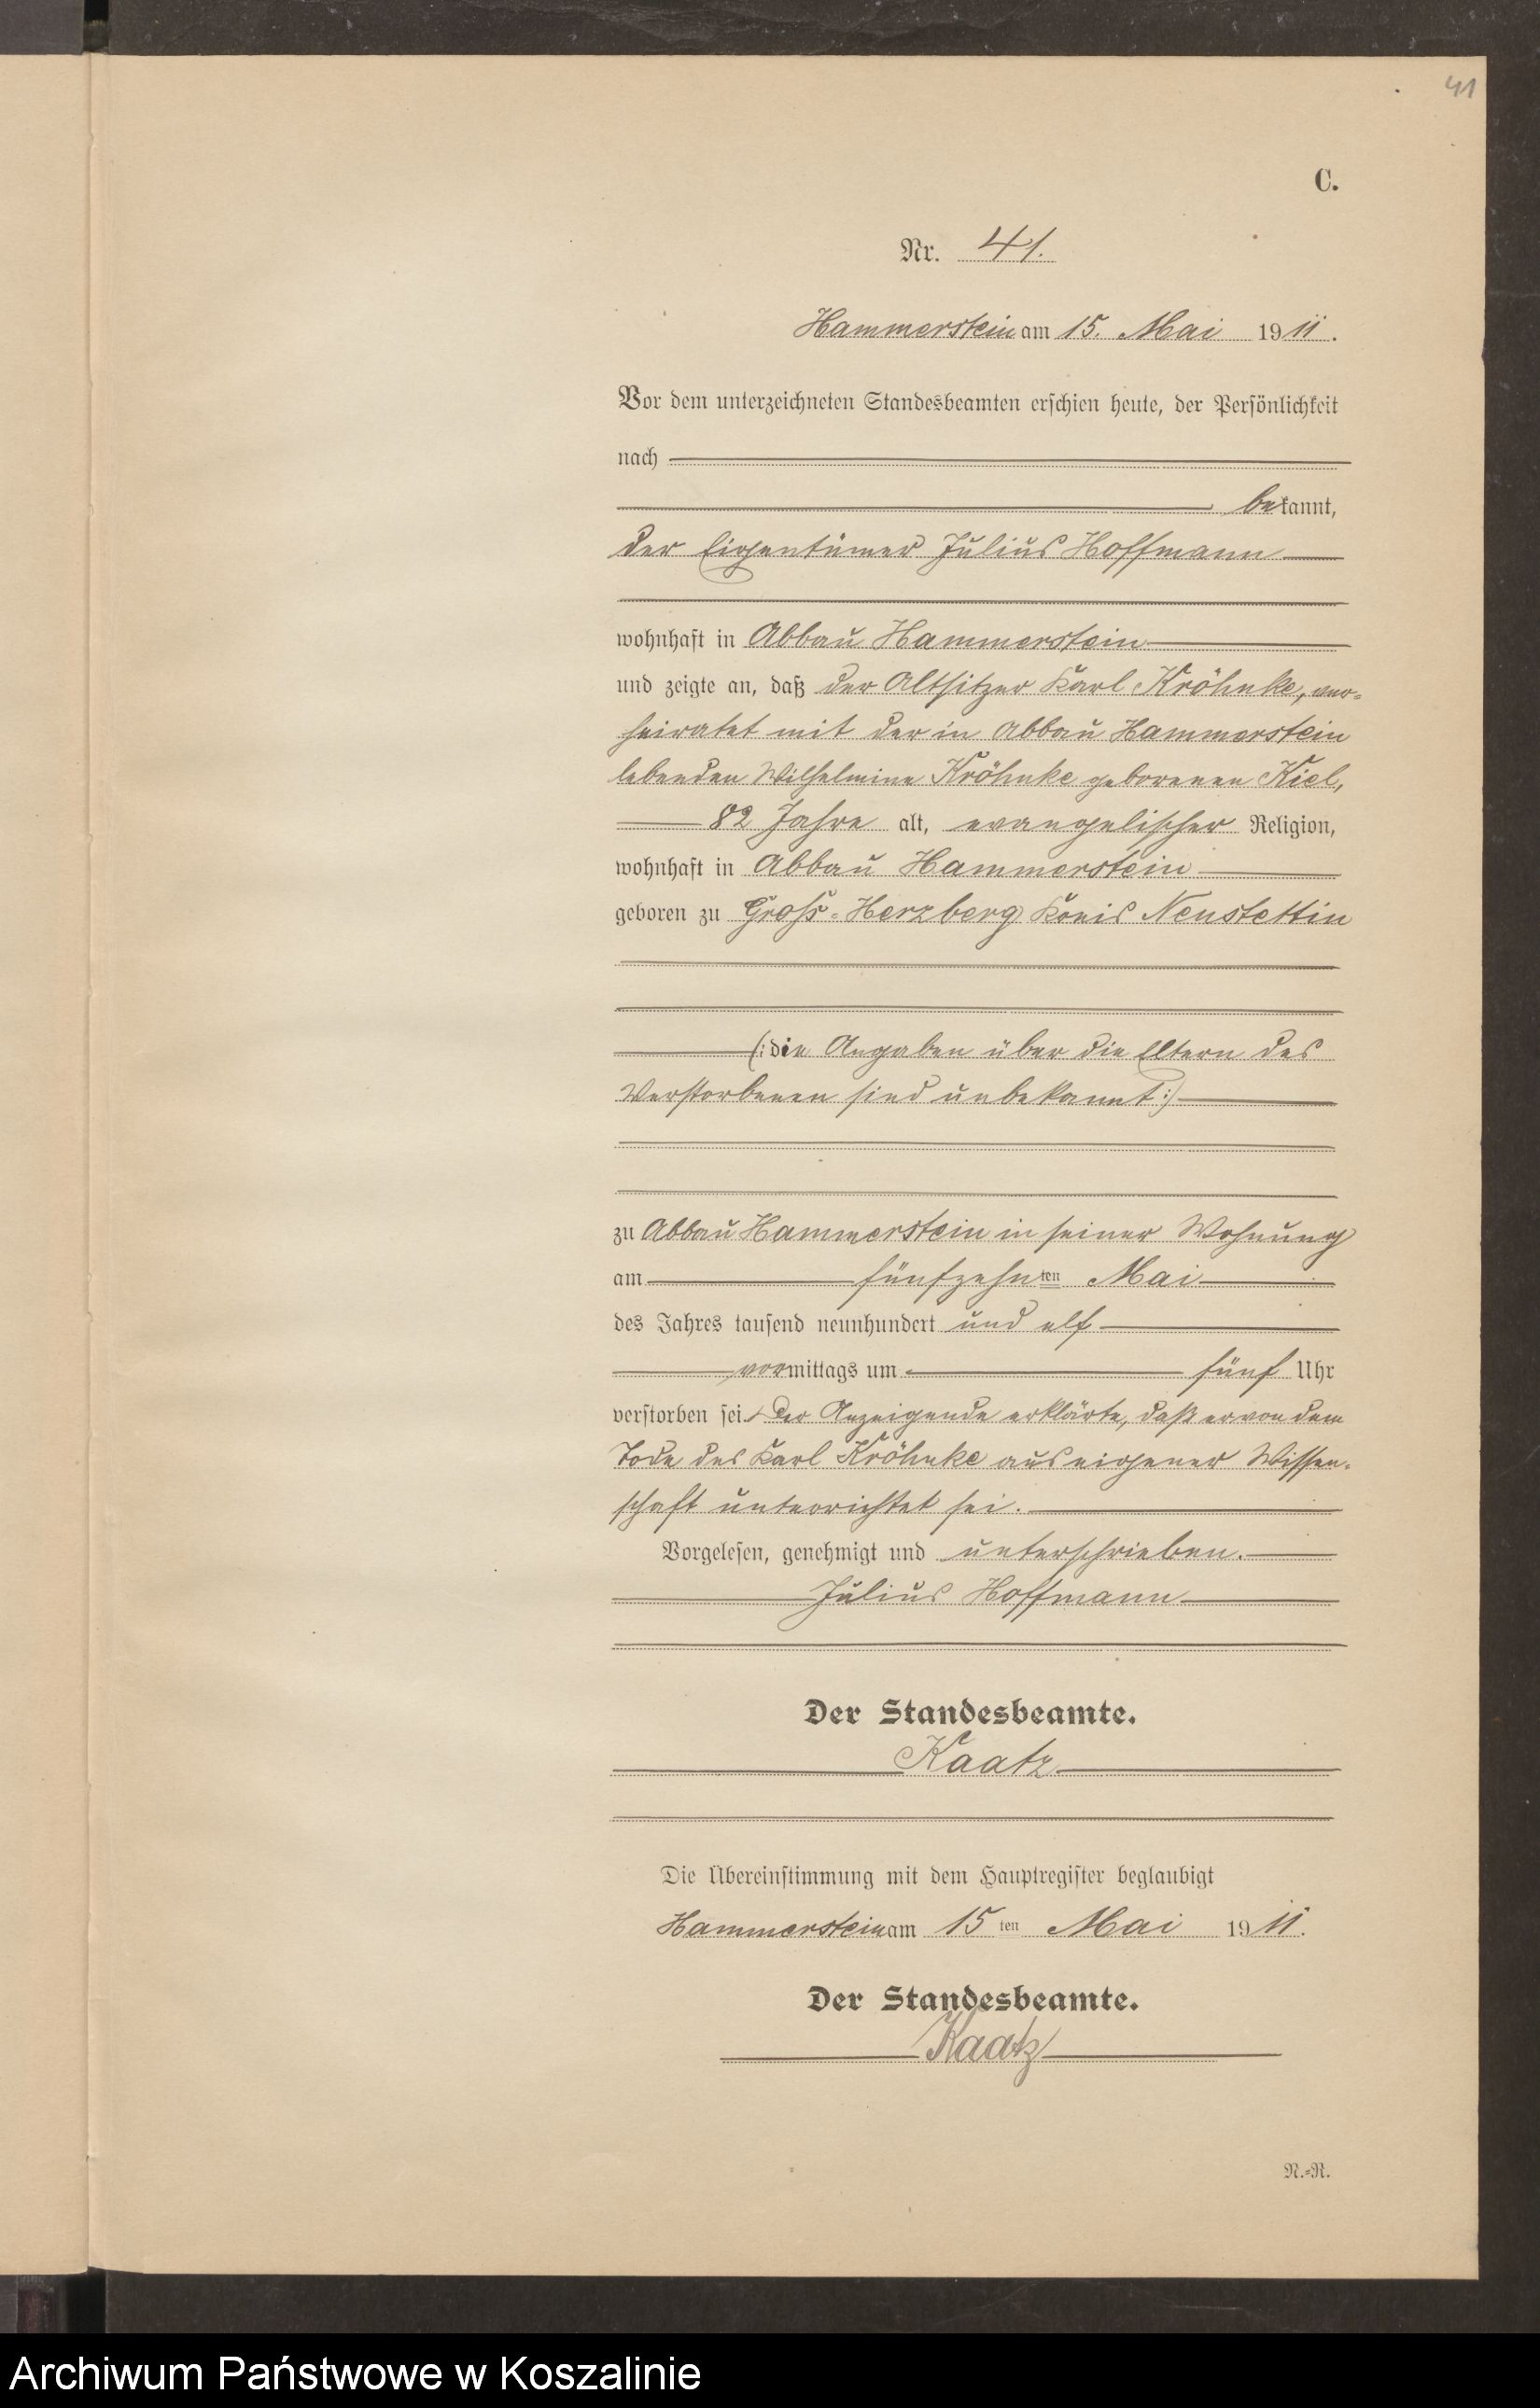 41
C.
Nr. 41.
Hammerstein am 15. Mai 1911.
Vor dem unterzeichneten Standesbeamten erschien heute, der Persönlichkeit
nach
bekannt,
der Eigentümer Julius Hoffmann
wohnhaft in Abbau Hammerstein
und zeigte an, daß der Altsitzer Karl Kröhnke, ver-
heiratet mit der in Abbau Hammerstein
lebenden Wilhelmine Kröhnke geborenen Kiel,
82 Jahre alt, evangelischer Religion,
wohnhaft in Abbau Hammerstein
geboren zu Groß-Herzberg Kreis Neustettin
(: die Angaben über die Eltern des
Verstorbenen sind unbekannt :)
zu Abbau Hammerstein in seiner Wohnung
am fünfzehnten Mai
des Jahres tausend neunhundert und elf
vormittags um fünf Uhr
verstorben sei. Der Anzeigende erklärte, daß er von dem
Tode des Karl Kröhnke aus eigener Wissen-
schaft unterrichtet sei.
Vorgelesen, genehmigt und unterschrieben.
Julius Hoffmann
Der Standesbeamte.
Kaatz
Die Übereinstimmung mit dem Hauptregister beglaubigt
Hammerstein am 15ten Mai 1911.
Der Standesbeamte.
Kaatz
N.-R.
Archiwum Państwowe w Koszalinie